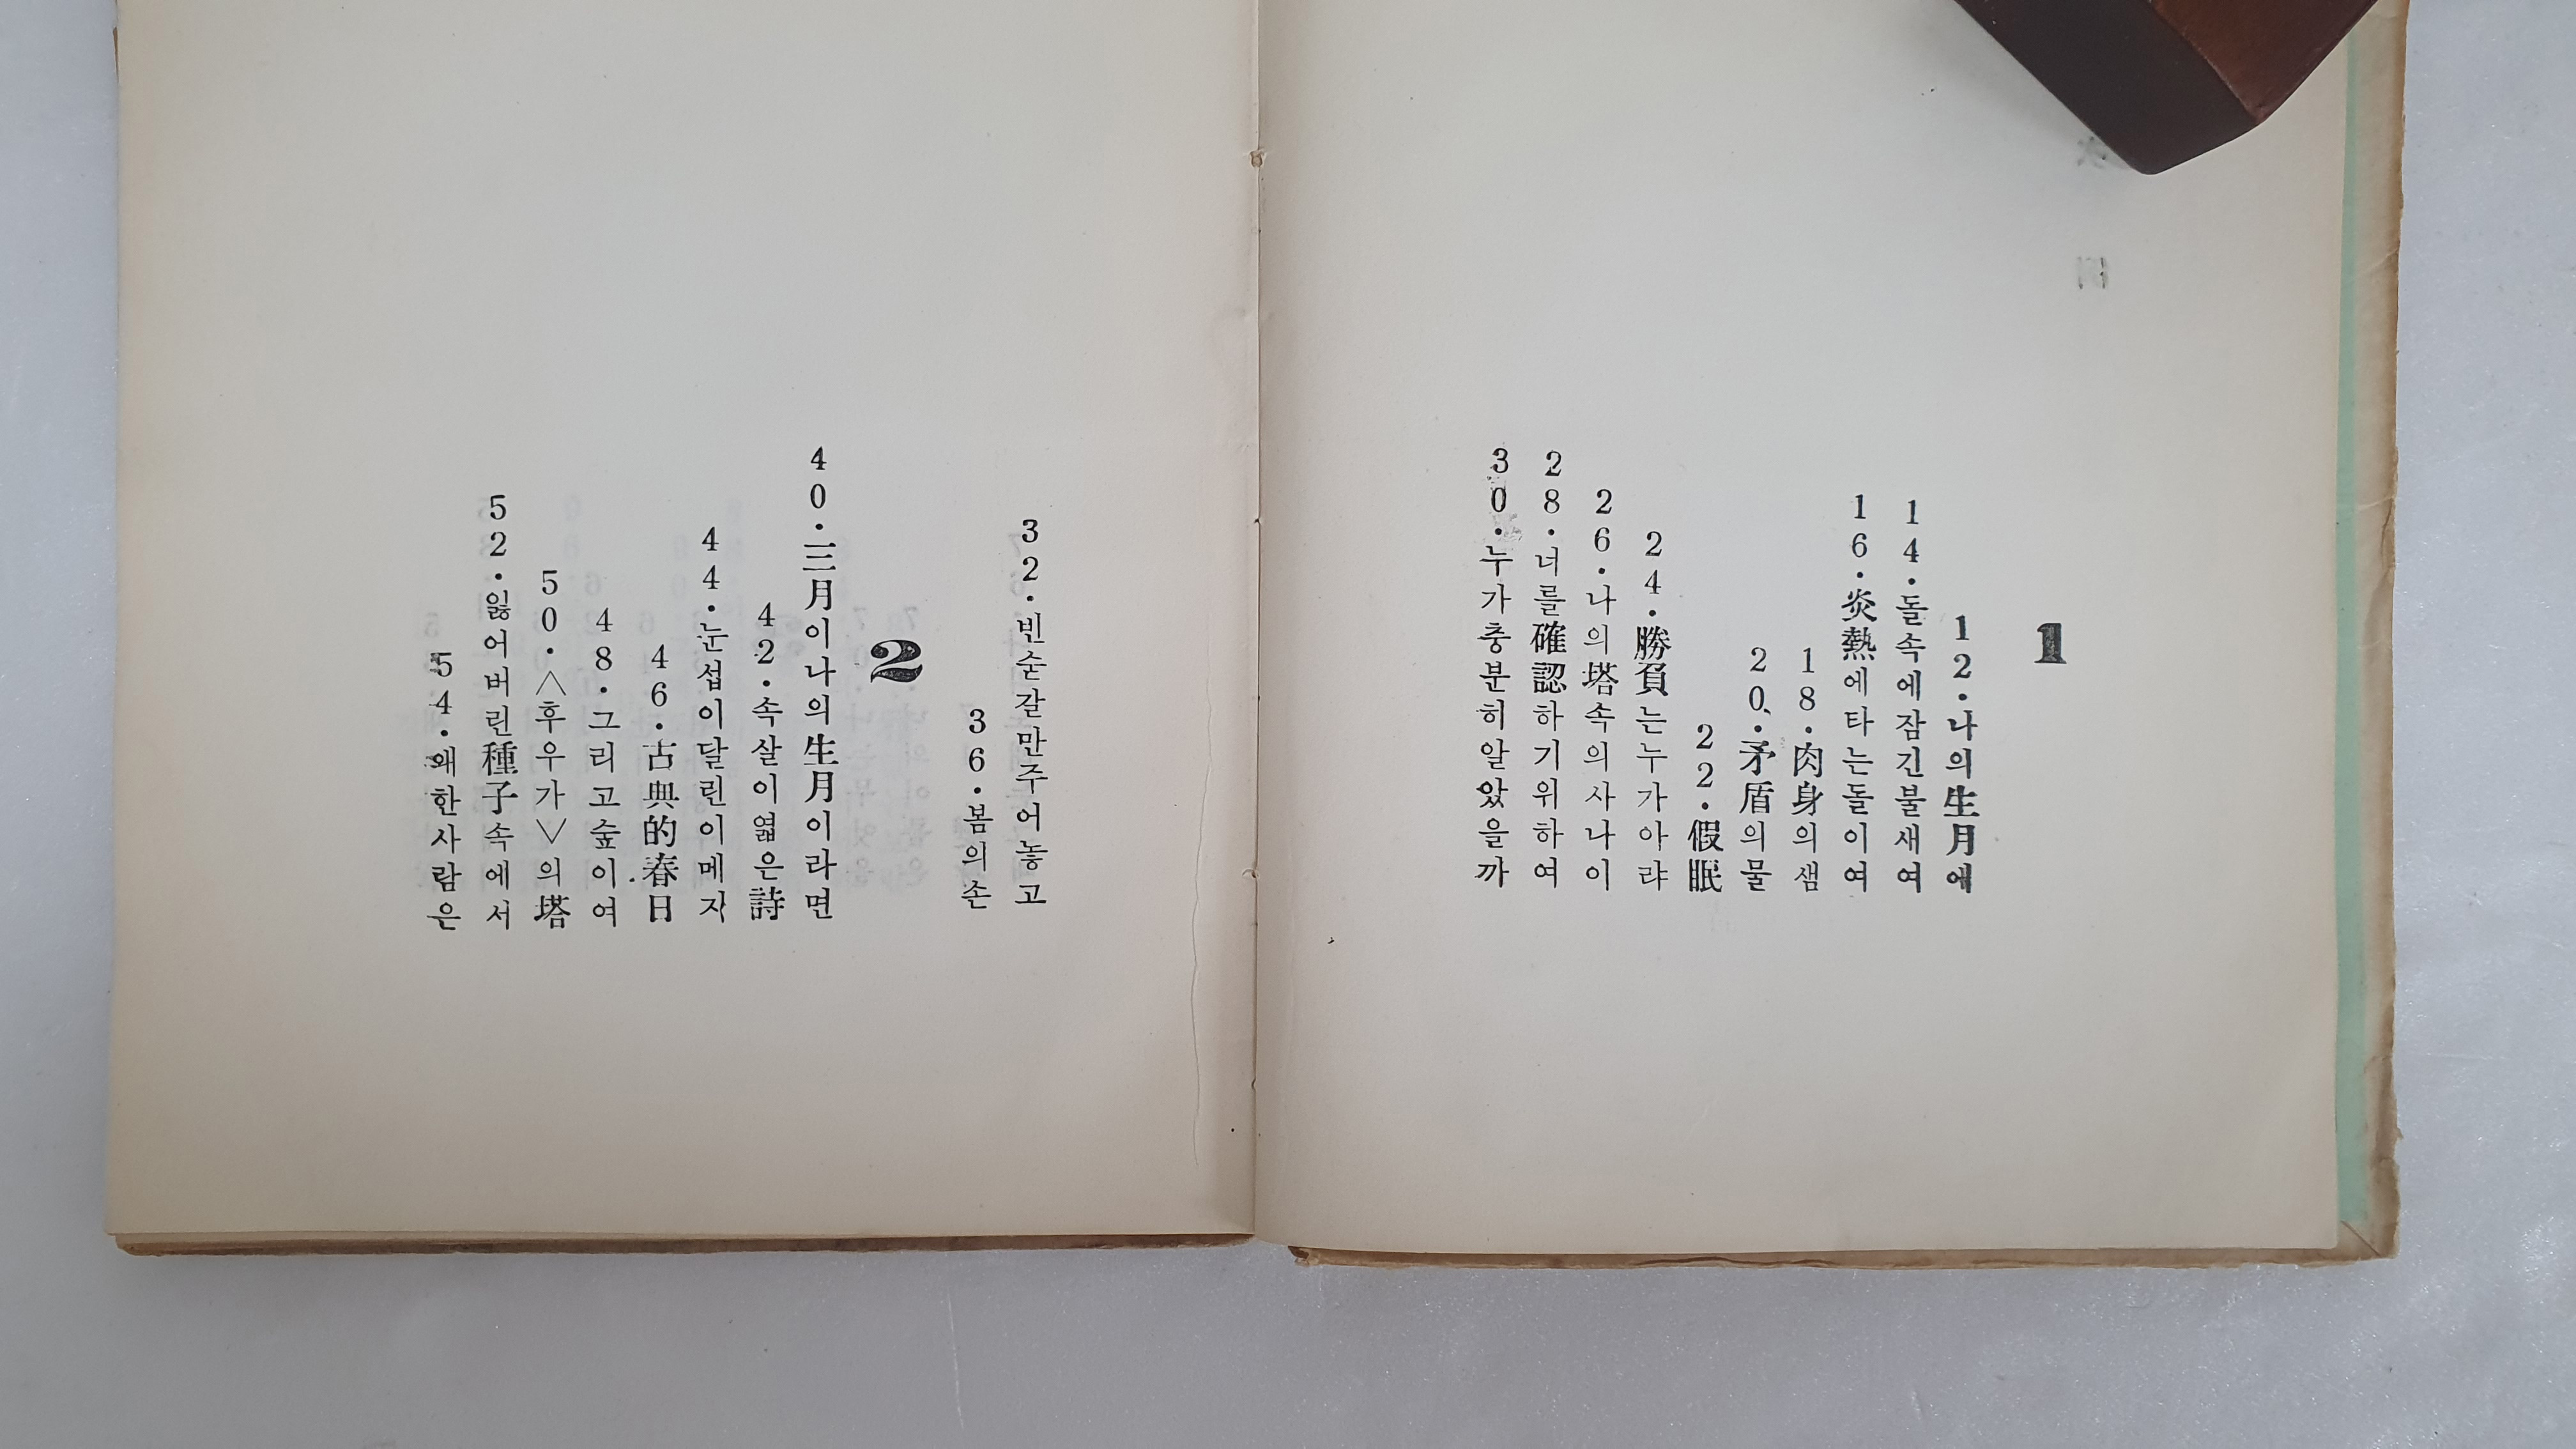 1
12·나의生月에
14·돌속에잠긴불새여
16·炎熱에타는돌이여
18·肉身의샘
20·矛盾의물
22·假眠
24·勝負는누가아랴
26·나의塔속의사나이
28·너를確認하기위하여
30·누가충분히알았을까
32·빈숟갈만주어놓고
36·봄의손
2
40·三月이나의生月이라면
42·속살이엷은詩
44·눈섭이달린이메자
46·古典的春日
48·그리고숲이여
50·<후우가>의塔
52·잃어버린種子속에서
54·왜한사람은